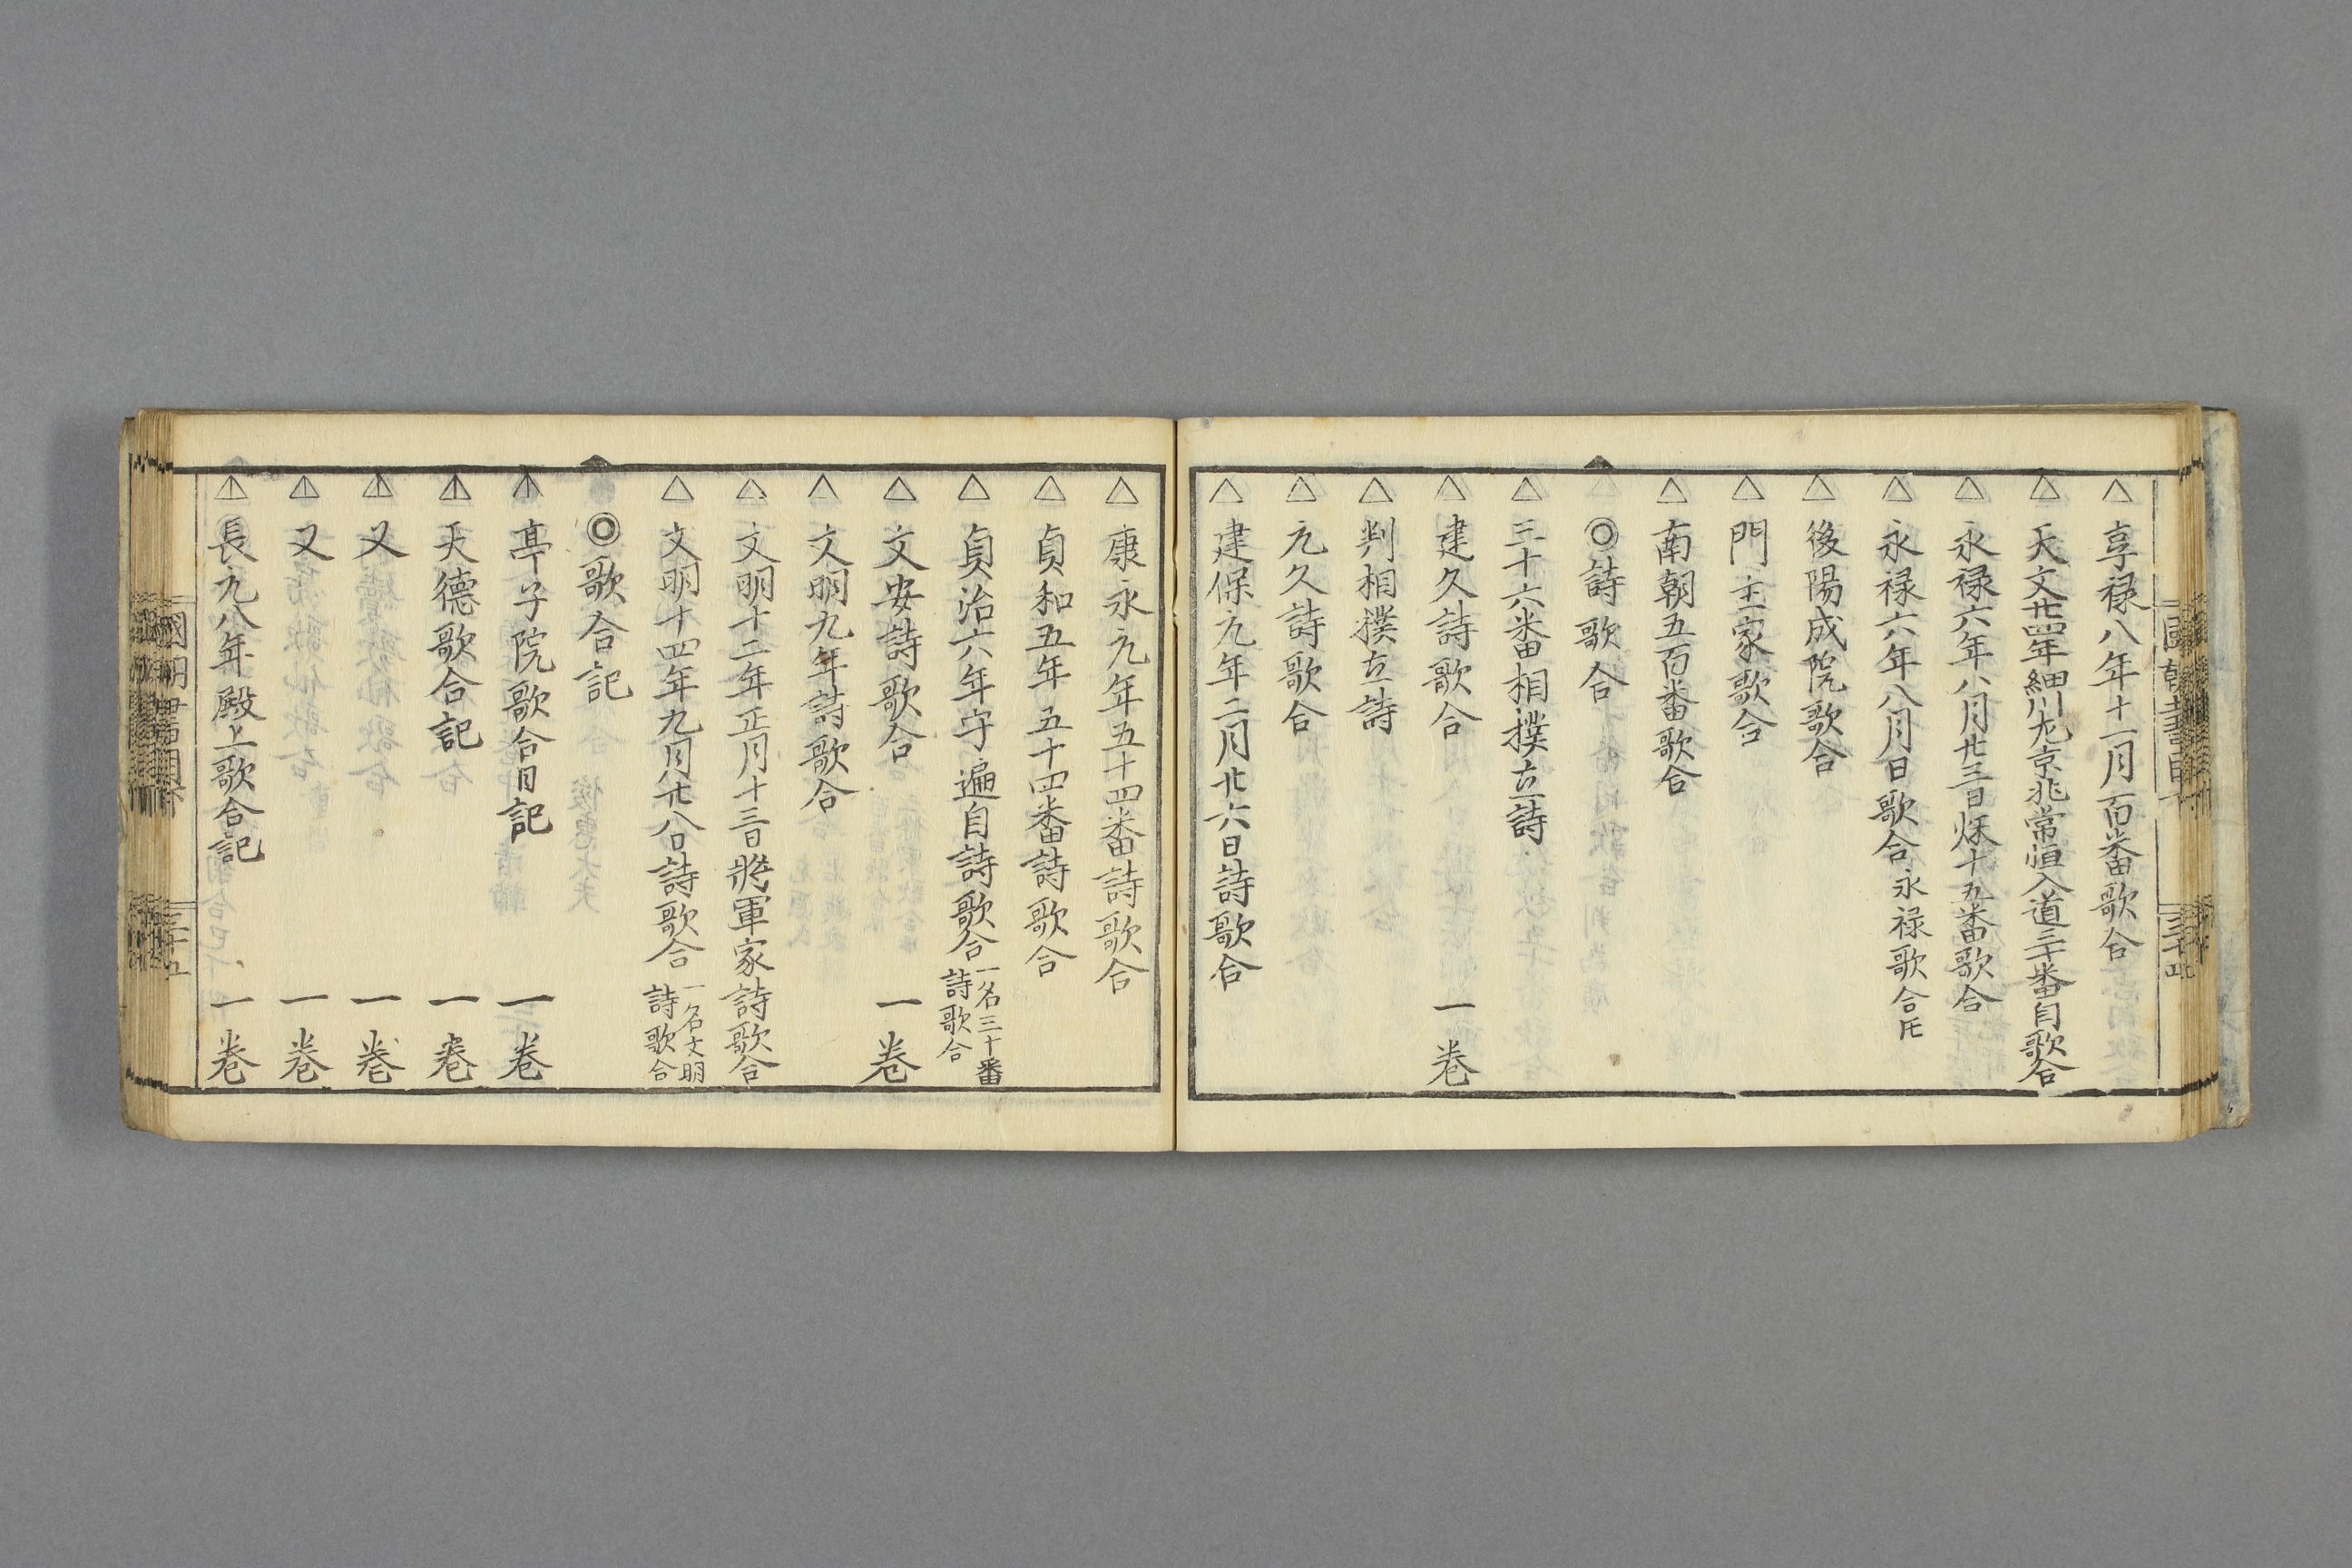 △ 享禄八年十一月一百番歌合
△ 天文廿四年細川九京兆常恒入道三十番自歌合
△ 永禄六年八月廿三日烁十五番歌合
△ 永禄六年八月日歌合 永禄歌合𪜈
△ 後陽成院歌合
△ 門主家歌合
△ 南朝五百番歌合
◎詩歌合
△ 三十六番相撲立詩
△ 建久詩歌合 一卷
△ 判相撲立詩
△ 元久詩歌合
△ 建保元年二月廿六日詩歌合
△ 康永元年五十四番詩歌合
△ 貞和五年五十四番詩歌合
△ 貞治六年守遍自詩歌合 一名三十番詩歌合
△ 文安詩歌合 一卷
△ 文明九年詩歌合
△ 文明十二年正月十三日將軍家詩歌合
△ 文明十四年九月廿八日詩歌合 一名文明詩歌合
◎歌合記
亭子院歌合日記 一卷
天德歌合記 一卷
又 一卷
又 一卷
長元八年殿上歌合記 一卷